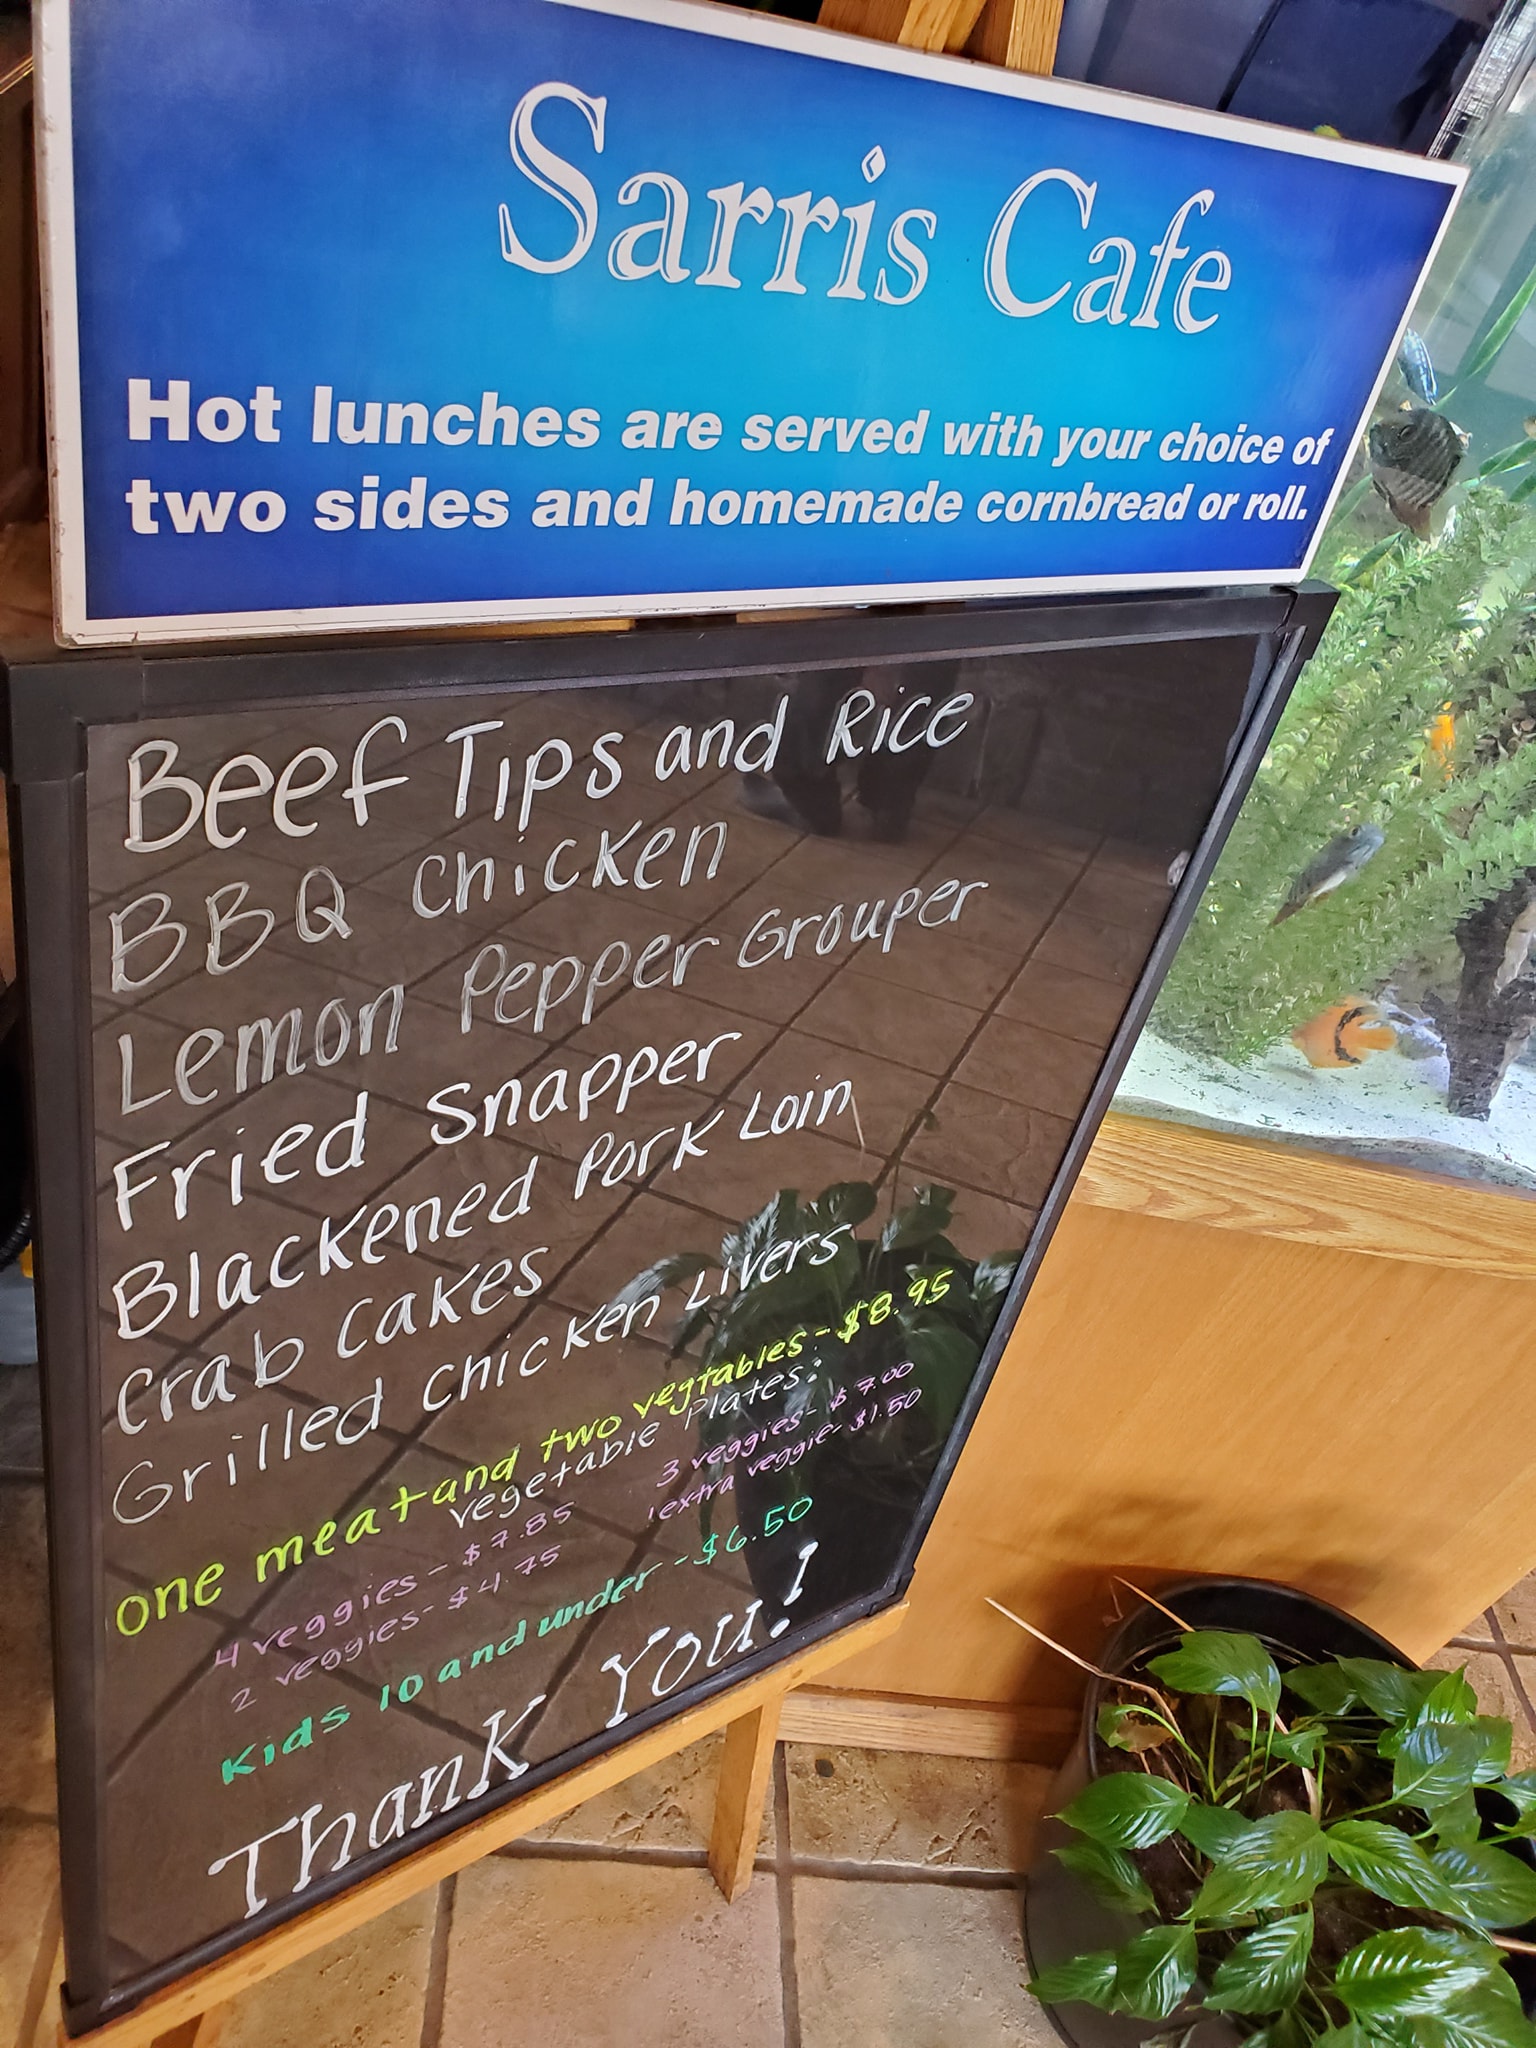 Sarris Cafe
Hot lunches are served with your choice of
two sides and homemade cornbread or roll.
Beef Tips and Rice
BBQ Chicken
Lemon Pepper Grouper
Fried Snapper
Blackened Pork Loin
Crab Cakes
Grilled Chicken Livers
one meat and two vegtables - $8.95
vegetable Plates:
4 veggies - $7.85 3 veggies - $7.00
2 veggies - $4.75 1 extra veggie - $1.50
Kids 10 and under - $6.50
Thank You!